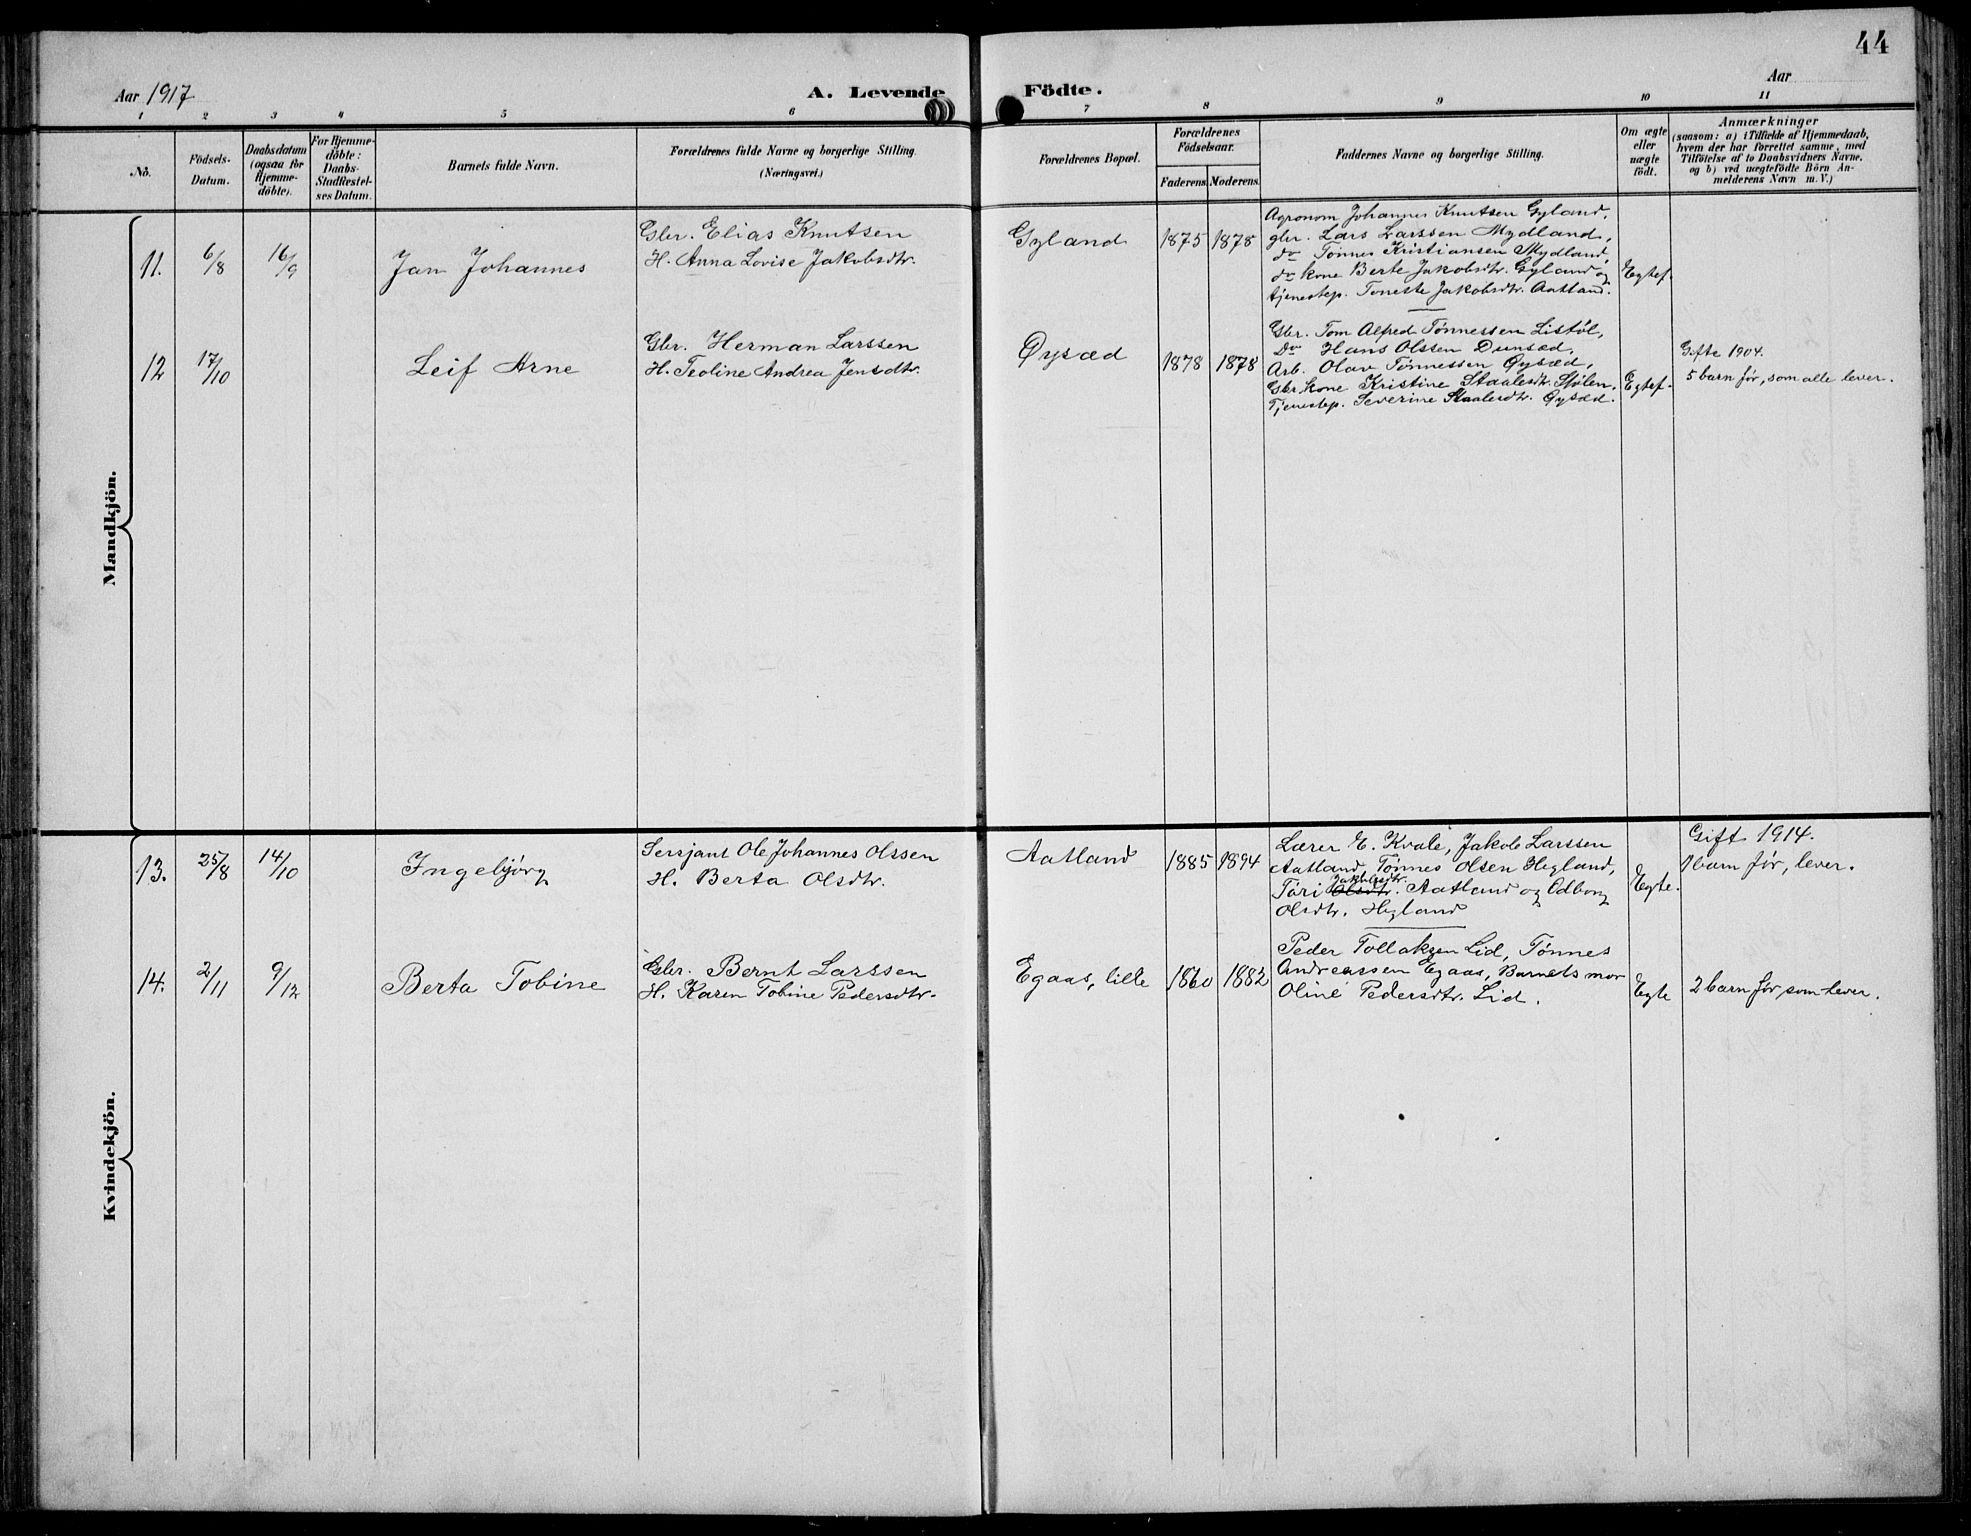 44
Aar 1917
A. Levende Födte.
Aar
1 2 3 4 5 6 7 8 9 10 11
No.
Födsels-
Datum.
Daabsdatum
(ogsaa for
Hjemme-
döbte).
For Hjemme-
döbte:
Daabs-
Stadfestel-
ses Datum.
Barnets fulde Navn.
Forældrenes fulde Navne og borgerlige Stilling.
(Næringsvei.)
Forældrenes Bopæl.
Forældrenes
Födselsaar.
Faderens. Moderens.
Faddernes Navne og borgerlige Stilling.
Om ægte
eller
uægte
födt.
Anmærkninger
(saasom: a) i Tilfælde af Hjemmedaab,
hvem der har forrettet samme, med
Tilföielse af to Daabsvidners Navne,
og b) ved uægtefödte Börn An-
melderens Navn m. V.)
Mandkjön.
11. 6/8 16/9 Jan Johannes
Gbr. Elias Knutsen
H. Anna Lovise Jakobsdtr.
Gyland 1875 1878
Agronom Johannes Knutsen Gyland,
gbr. Lars Larssen Mydland,
do Tønnes Kristiansen Mydland,
do kone Berte Jakobsdtr. Gyland og
tjenestep. Toneste Jakobsdtr. Aatland.
Egtef.
12 17/10 Leif Arne
Gbr. Herman Larssen
H. Teoline Andrea Jensdtr.
Øysæd 1878 1878
Gbr. Tom Alfred Tønnessen Listøl,
Do Hans Olssen Dunsæd,
Arb. Olav Tønnessen Øysæd,
Gbr. kone Kristine Staalesdtr. Stølen,
Tjenestep. Severine Staalesdtr. Øysæd.
Egtef.
Gifte 1904.
5 barn før, som alle lever.
Kvindekjön.
13. 25/8 14/10 Ingebjørg
Sersjant Ole Johannes Olssen
H. Berta Olsdtr.
Aatland 1885 1894
Lærer E. Kvale, Jakob Larssen
Aatland, Tønnes Olsen Hegland,
Jakobsdtr.
Tøri Olsdtr. Aatland og Odborg
Olsdtr. Hegland
Egte.
Gift 1914.
1 barn før, lever.
14. 2/11 9/12 Berta Tobine
Gbr. Bernt Larssen
H. Karen Tobine Pedersdtr.
Egaas, lille 1860 1882
Peder Tollaksen Lid, Tønnes
Andreassen Egaas, Barnets mor
Oline Pedersdtr. Lid.
Egte
2 barn før, som lever.